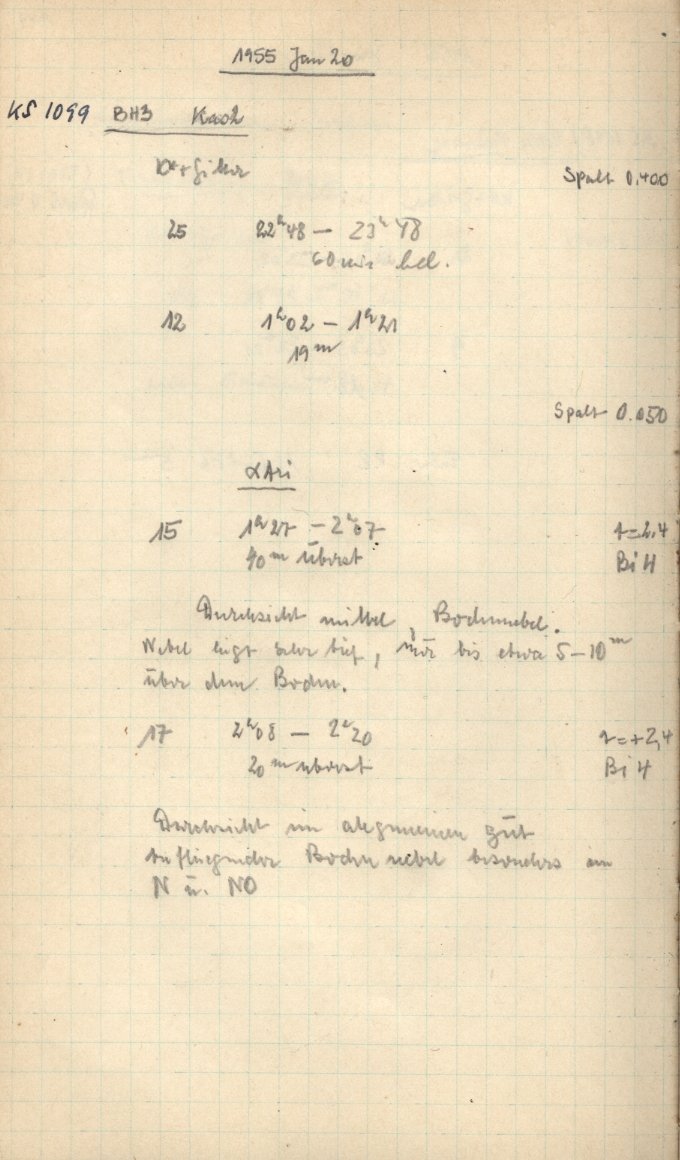 1955 Jan 20
KS 1099 BH3
Spalt 0.400
25 22ʰ48 — 23ʰ48
60 min bel.
12 1ʰ02 — 1ʰ21
19ᵐ
Spalt 0.050
α Ari
15 1ʰ27 — 2ʰ07 t=2,4
40ᵐ überst Bi 4
Durchsicht mittel, Bodennebel.
Nebel liegt sehr tief, nur bis etwa 5–10ᵐ
über dem Boden.
17 2ʰ08 — 2ʰ20 t=+2,4
20ᵐ überst Bi 4
Durchsicht im allgemeinen gut
Bodennebel besonders im
N u. NO